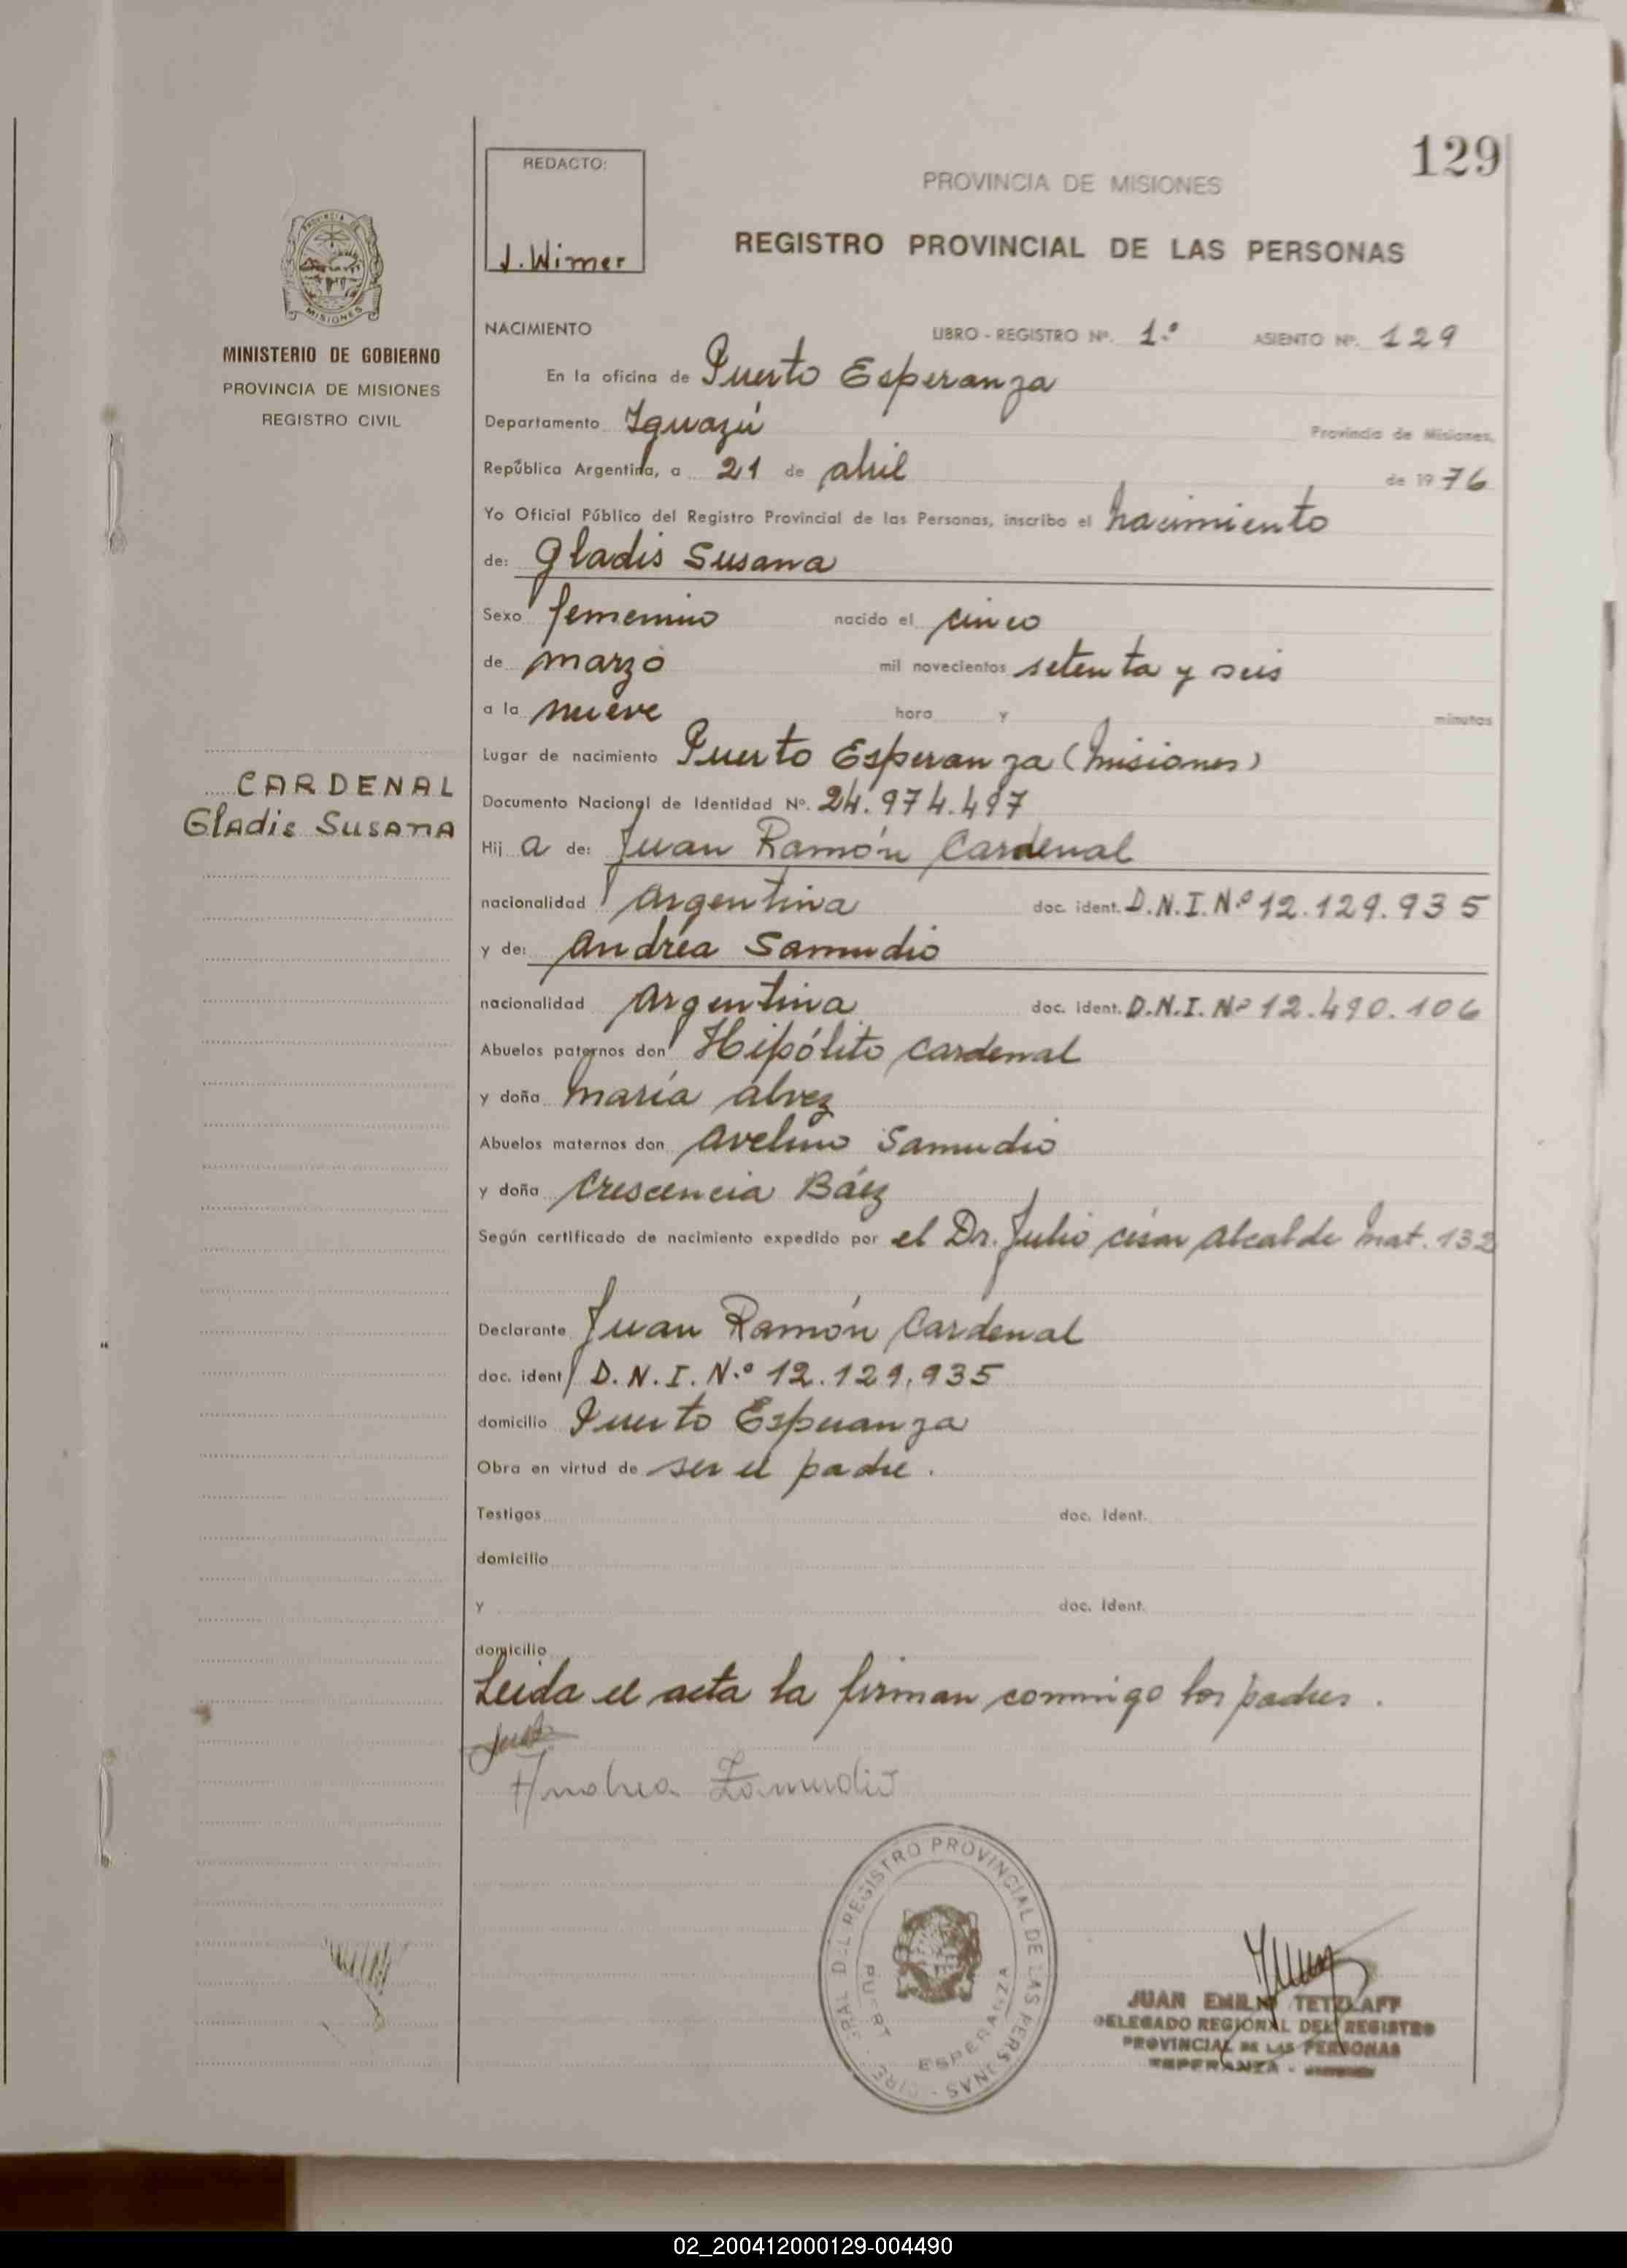 129
REDACTO:
J. Wimer
PROVINCIA DE MISIONES
REGISTRO PROVINCIAL DE LAS PERSONAS
MINISTERIO DE GOBIERNO
PROVINCIA DE MISIONES
REGISTRO CIVIL
CARDENAL
Gladis Susana
NACIMIENTO LIBRO - REGISTRO Nº. 1.º ASIENTO Nº. 129
En la oficina de Puerto Esperanza
Departamento Iguazú Provincia de Misiones,
República Argentina, a 21 de abril de 1976
Yo Oficial Público del Registro Provincial de las Personas, inscribo el nacimiento
de: Gladis Susana
Sexo femenino nacido el cinco
de marzo mil novecientos setenta y seis
a la nueve hora y minutos
Lugar de nacimiento Puerto Esperanza (Misiones)
Documento Nacional de Identidad Nº. 24.974.497
Hij a de: Juan Ramón Cardenal
nacionalidad Argentina doc. ident. D.N.I. Nº 12.129.935
y de: Andréa Samudio
nacionalidad Argentina doc. ident. D.N.I. Nº 12.490.106
Abuelos paternos don Hipólito Cardenal
y doña María Alvez
Abuelos maternos don Avelino Samudio
y doña Crescencia Báez
Según certificado de nacimiento expedido por el Dr. Julio César Alcalde Mat. 132
Declarante Juan Ramón Cardenal
doc. ident D.N.I. N.º 12.129.935
domicilio Puerto Esperanza
Obra en virtud de ser el padre.
Testigos doc. ident.
domicilio
y doc. ident.
domicilio
Leida el acta la firman conmigo los padres.
Andrea Zamudio
REGISTRO PROVINCIAL DE LAS PERSONAS
ESPERANZA
JUAN EMILIO TETZLAFF
DELEGADO REGIONAL DEL REGISTRO
PROVINCIAL DE LAS PERSONAS
ESPERANZA -
02_200412000129-004490